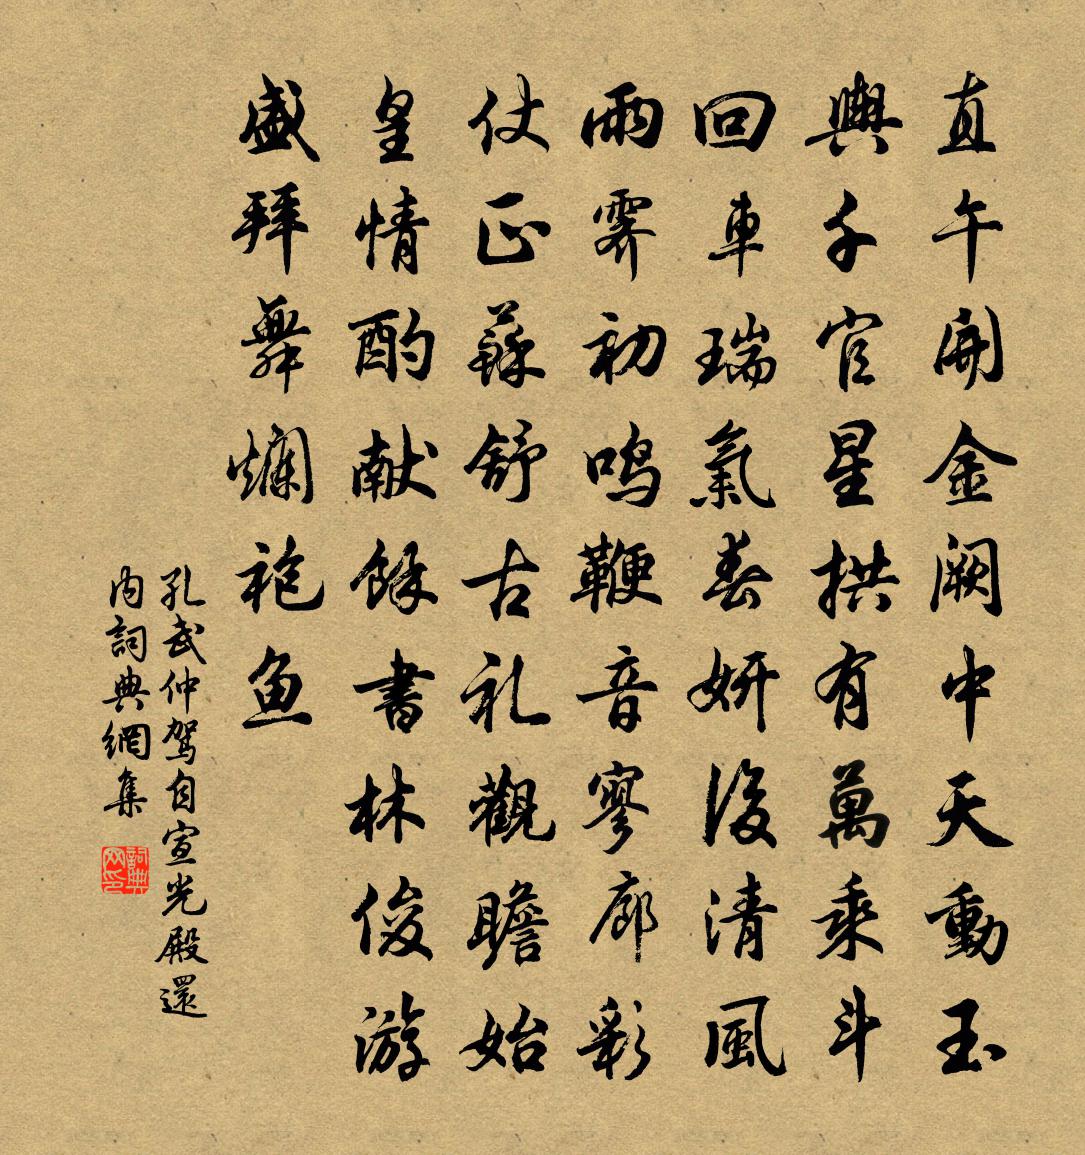 直午開金闕中天動玉
輿千官星拱有萬乘斗
回車瑞氣春妍後清風
雨霽初鳴鞭音寥廊彩
仗正蘇舒古礼觀瞻始
皇情酌献餘書林俊游
盛拜舞爛袍魚
孔武仲駕自宣光殿還
内詞典網集
詞典
网印